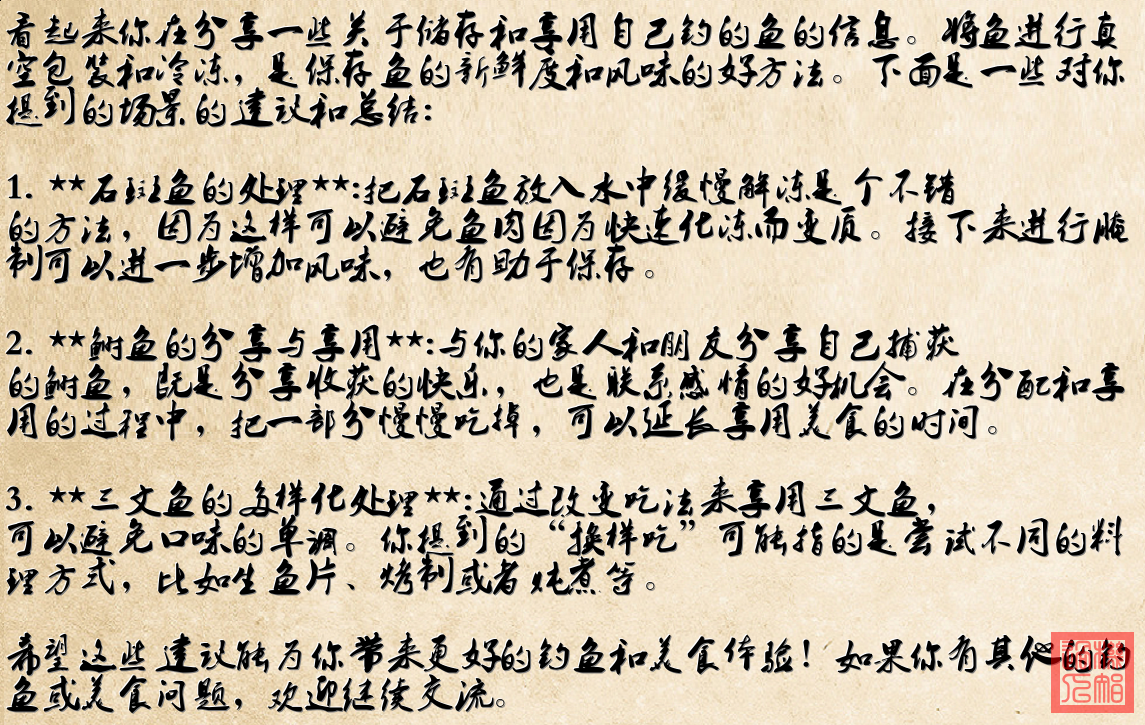 看起来你在分享一些关于储存和享用自己钓的鱼的信息。将鱼进行真
空包装和冷冻，是保存鱼的新鲜度和风味的好方法。下面是一些对你
提到的场景的建议和总结：
1. **石斑鱼的处理**:把石斑鱼放入水中缓慢解冻是个不错
的方法，因为这样可以避免鱼肉因为快速化冻而变质。接下来进行腌
制可以进一步增加风味，也有助于保存。
2. **鲥鱼的分享与享用**:与你的家人和朋友分享自己捕获
的鲥鱼，既是分享收获的快乐，也是联系感情的好机会。在分配和享
用的过程中，把一部分慢慢吃掉，可以延长享用美食的时间。
3. **三文鱼的多样化处理**:通过改变吃法来享用三文鱼，
可以避免口味的单调。你提到的“换样吃”可能指的是尝试不同的料
理方式，比如生鱼片、烤制或者炖煮等。
希望这些建议能为你带来更好的钓鱼和美食体验！如果你有其他的钓
鱼或美食问题，欢迎继续交流。